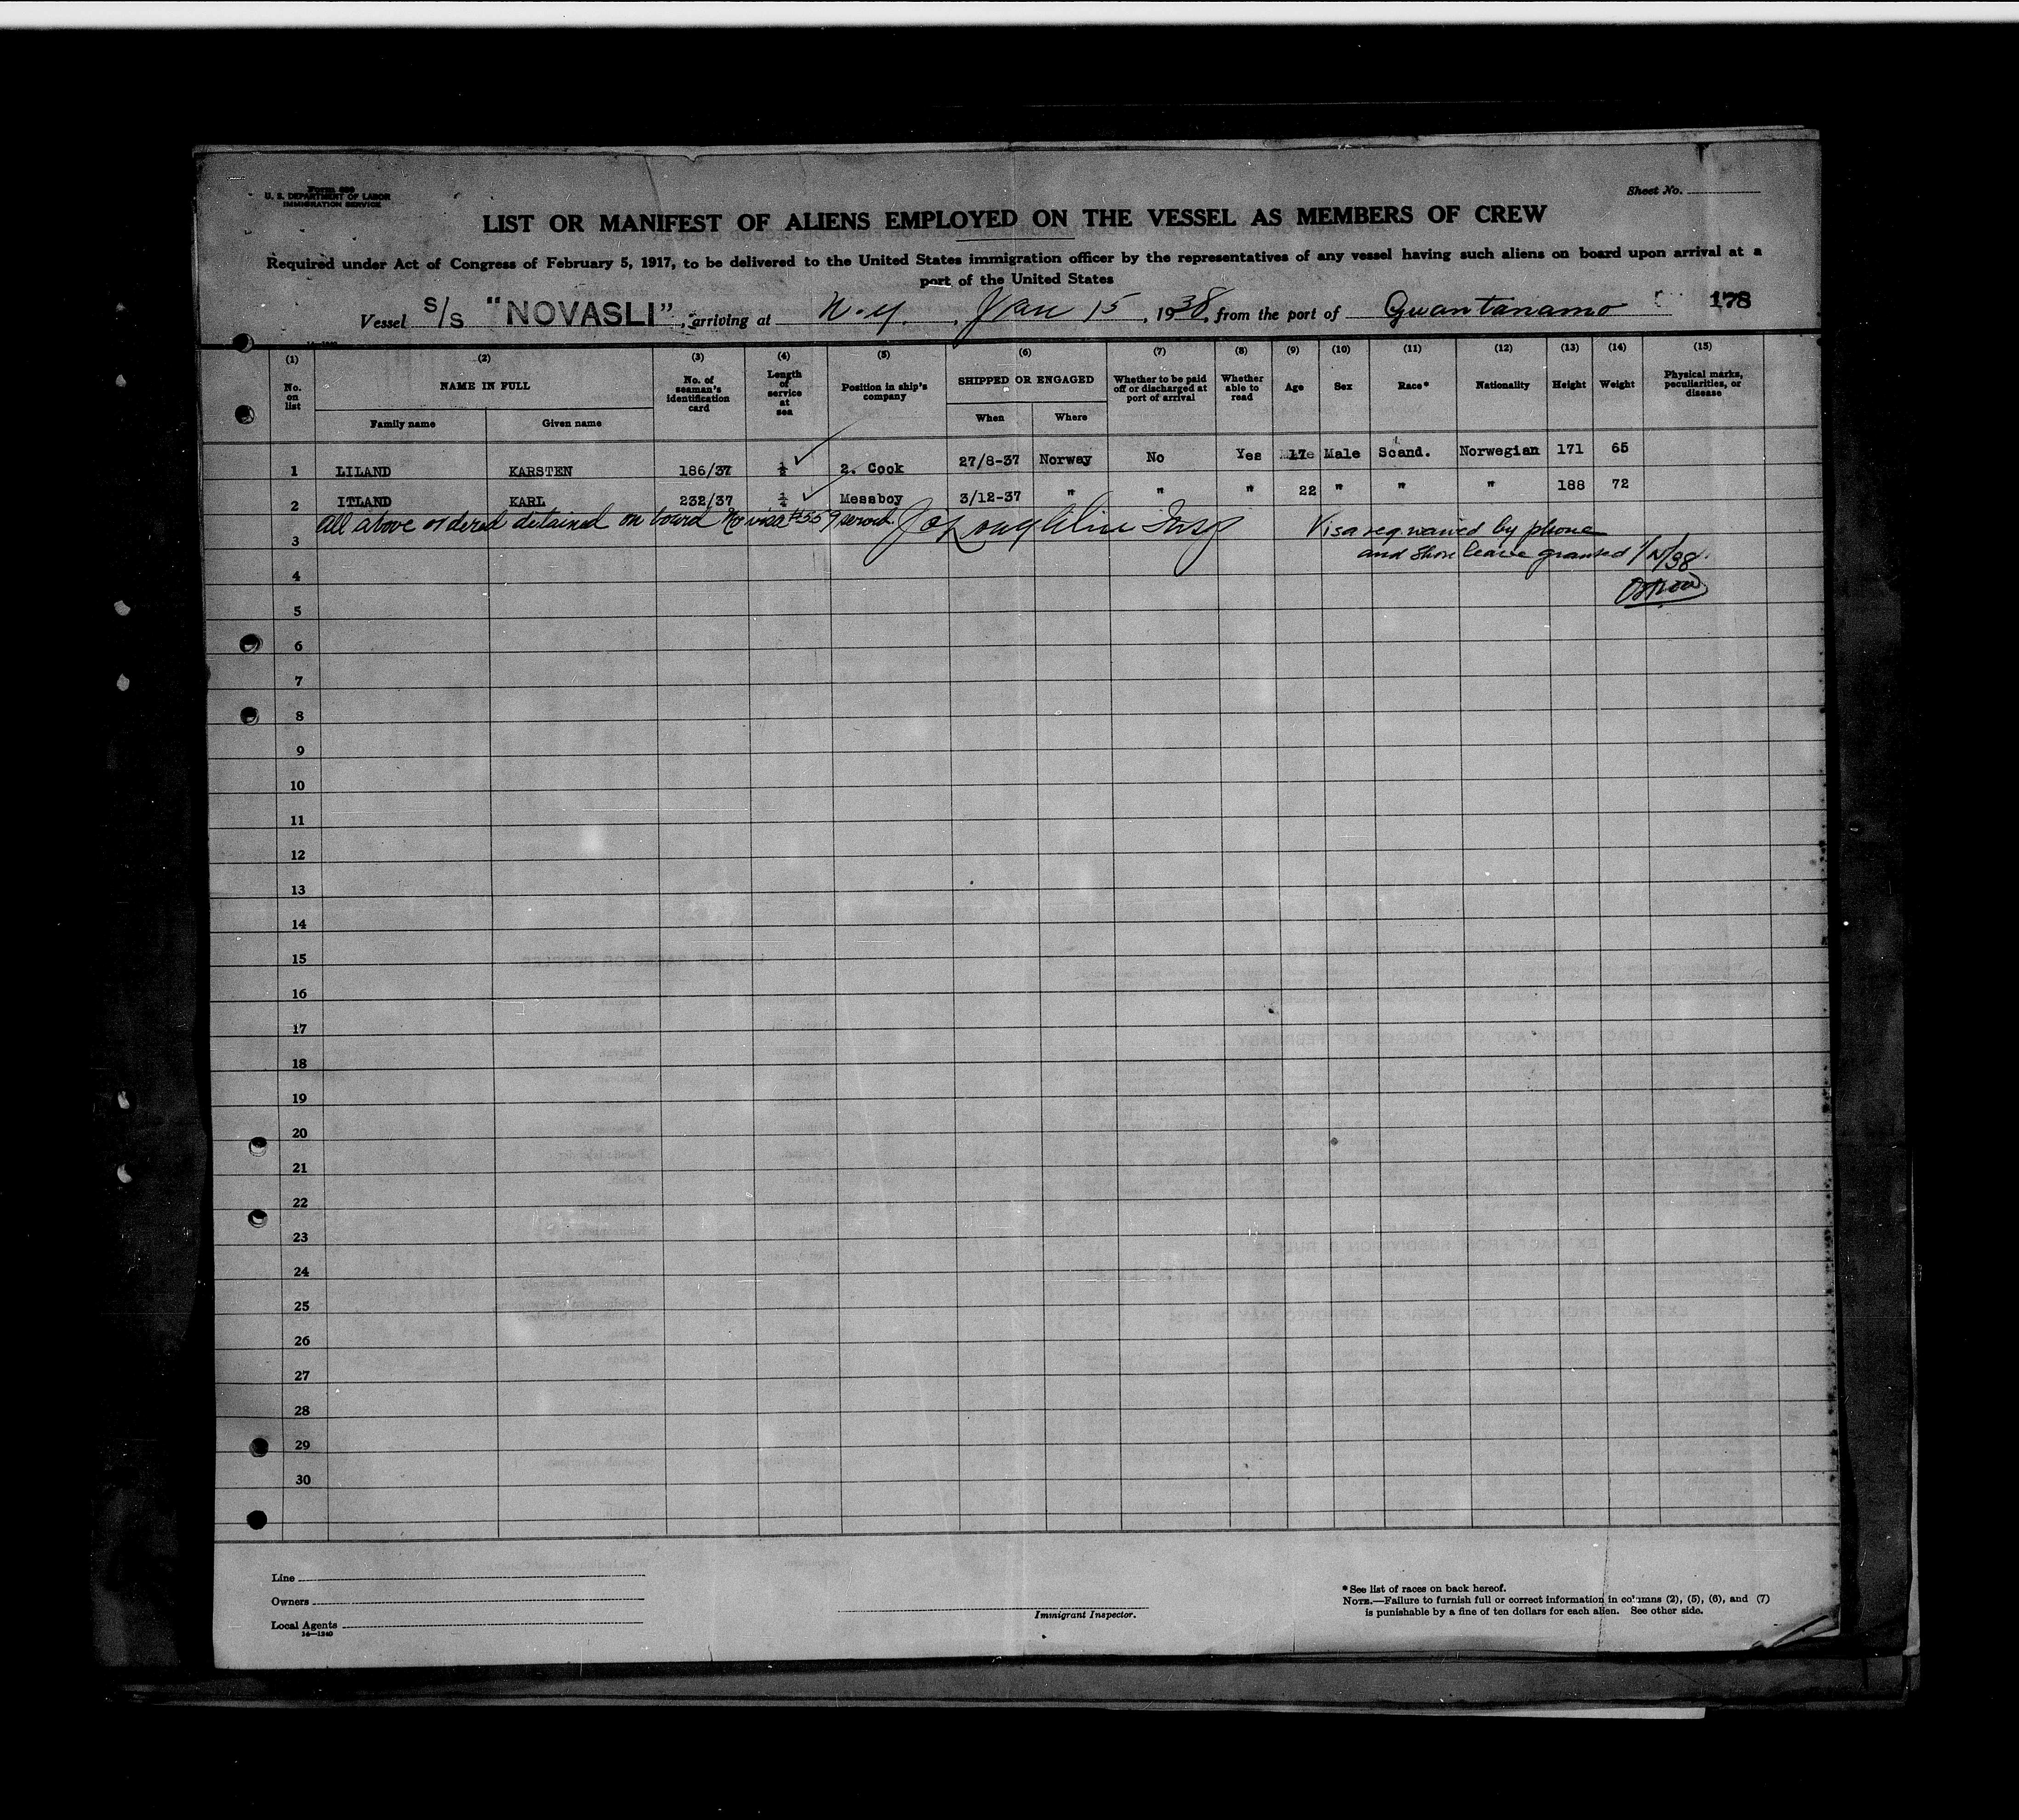 Form 689
U. S. DEPARTMENT OF LABOR
IMMIGRATION SERVICE
Sheet No.
LIST OR MANIFEST OF ALIENS EMPLOYED ON THE VESSEL AS MEMBERS OF CREW
Required under Act of Congress of February 5, 1917, to be delivered to the United States immigration officer by the representatives of any vessel having such aliens on board upon arrival at a
port of the United States
Vessel S/S "NOVASLI", arriving at N.Y., Jan 15, 1938, from the port of Guantanamo 178
(1) (2) (3) (4) (5) (6) (7) (8) (9) (10) (11) (12) (13) (14) (15)
No. on list NAME IN FULL No. of seaman's identification card Length of service at sea Position in ship's company SHIPPED OR ENGAGED Whether to be paid off or discharged at port of arrival Whether able to read Age Sex Race* Nationality Height Weight Physical marks, peculiarities, or disease
Family name Given name When Where
1 LILAND KARSTEN 186/37 ½ 2. Cook 27/8-37 Norway No Yes 17 Male Scand. Norwegian 171 65
2 ITLAND KARL 232/37 Messboy 3/12-37 " " " 22 " " " 188 72
All above ordered detained on board No visa 689 served. Insp Visa req. waived by phone
3
and shore leave granted
4
5
6
7
8
9
10
11
12
13
14
15
16
17
18
19
20
21
22
23
24
25
26
27
28
29
30
Line
Owners
Local Agents
16—1240
Immigrant Inspector.
* See list of races on back hereof.
NOTE.—Failure to furnish full or correct information in columns (2), (5), (6), and (7)
is punishable by a fine of ten dollars for each alien. See other side.